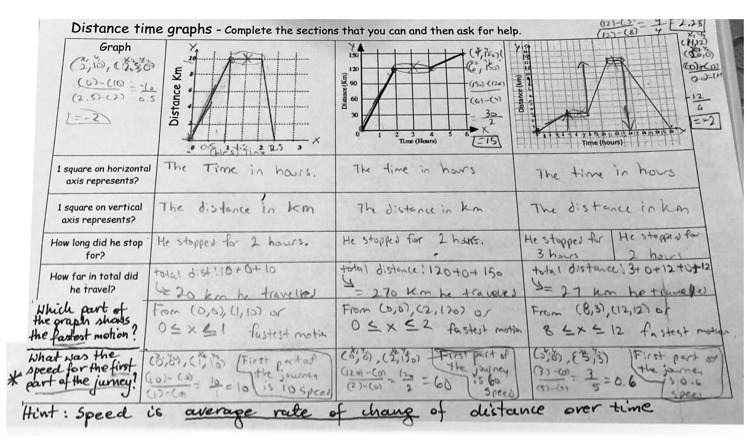 Distance time graphs - Complete the sections that you can and then ask for help.
Graph
(0)-(10)
(2.5)-(2)
0.5
Distance Km
Y
X
0.5 1 2 2.5 3
Y
Distance (Km)
150
120
90
60
30
0 1 2 3 4 5 6
X
Time (Hours)
(4)-(6)
30
2
=15
Distance (km)
Time (hours)
= 2.25
-12
6
=-2
1 square on horizontal axis represents?
The Time in hours.
The time in hours
The time in hours
1 square on vertical axis represents?
The distance in km
The distance in km
The distance in km
How long did he stop for?
He stopped for 2 hours.
He stopped for 2 hours.
He stopped for 3 hours
He stopped for 2 hours
How far in total did he travel?
total dist: 10+0+10
= 20 km he travelled
total distance: 120+0+150
= 270 km he traveled
total distance: 3+0+12+0+12
= 27 km he traveled
Which part of the graph shows the fastest motion?
From (0,0), (1,10) or
0 ≤ x ≤ 1 fastest motion
From (0,0), (2,120) or
0 ≤ x ≤ 2 fastest motion
From (8,3), (12,12) or
8 ≤ x ≤ 12 fastest motion
* What was the speed for the first part of the jurney?
(0,0), (1,10)
(10)-(0)
(1)-(0)
= 10
1
= 10
First part of the journey is 10 speed
(120)-(0)
(2)-(0)
= 120
2
= 60
First part of the journey is 60 speed
(0,0), (5,3)
(3)-(0)
(5)-(0)
= 3
5
= 0.6
First part of the journey is 0.6 speed
Hint : Speed is average rate of chang of distance over time